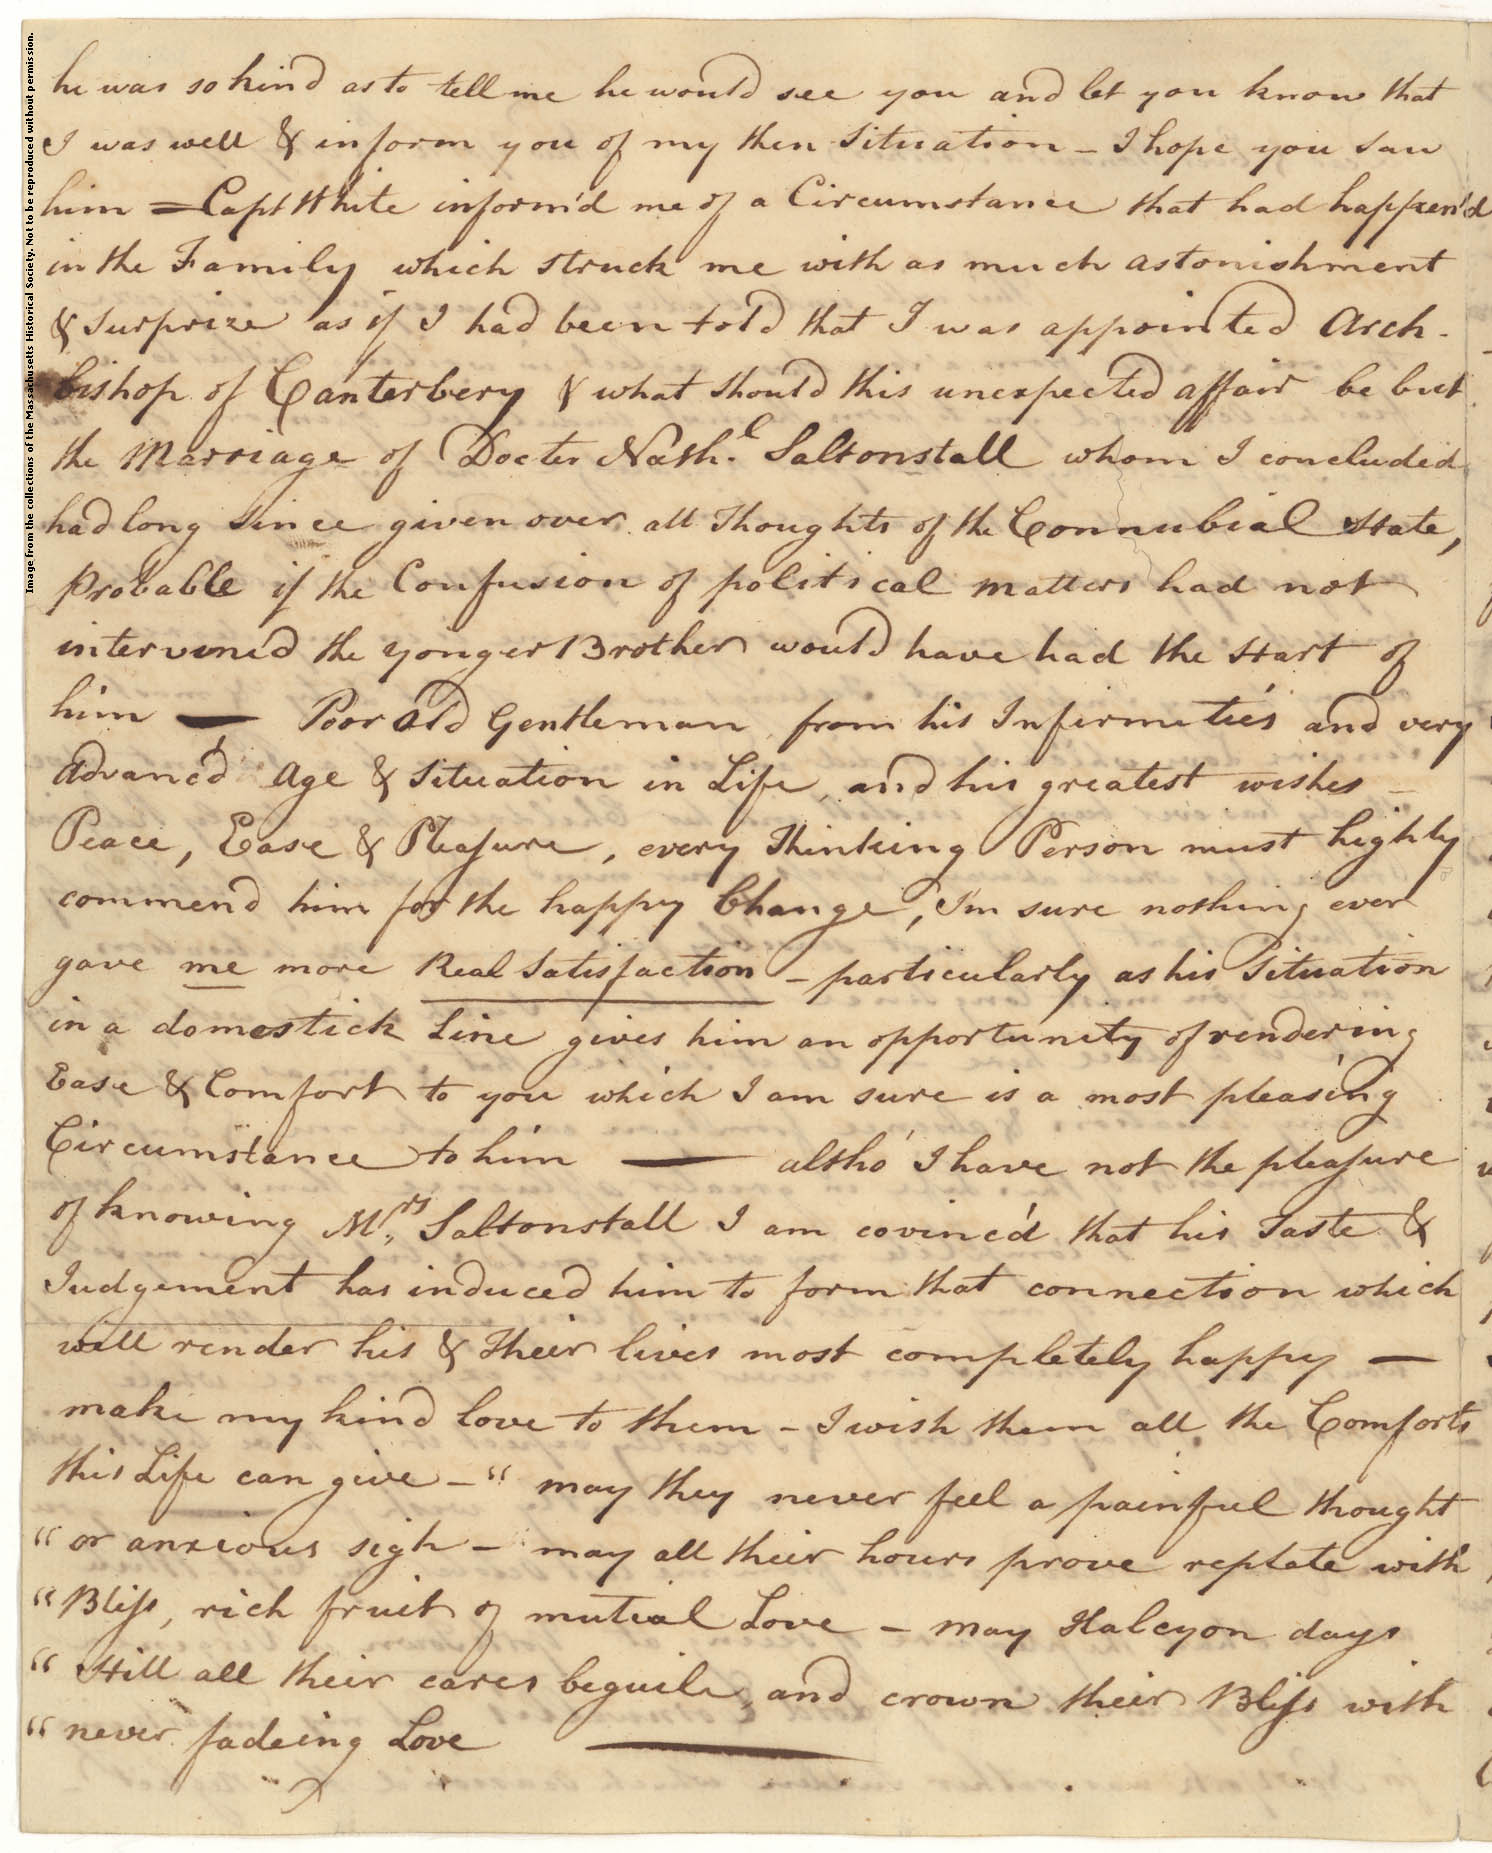 Image from the collections of the Massachusetts Historical Society. Not to be reproduced without permission.
he was so kind as to tell me he would see you and let you know that
I was well & inform you of my then Situation – I hope you saw
him = Capt White inform'd me of a Circumstance that had happen'd
in the Family which struck me with as much astonishment
& Surprize as if I had been told that I was appointed Arch-
bishop of Canterbery & what should this unexpected affair be but
the Marriage of Docter Nath.l Saltonstall whom I concluded
had long since given over all Thoughts of the Connubial State,
Probable if the Confusion of political matters had not
intervined the yonger Brother would have had the start of
him — Poor old Gentleman from his Infirmities and very
Advanc'd Age & Situation in Life, and his greatest wishes –
Peace, Ease & Pleasure, every Thinking Person must highly
commend him for the happy Change, I'm sure nothing ever
gave me more Real Satisfaction – particularly as his Situation
in a domestick Line gives him an opportunity of rendering
Ease & Comfort to you which I am sure is a most pleasing
Circumstance to him — altho' I have not the pleasure
of knowing Mrs. Saltonstall I am covinc'd that his Taste &
Judgement has induced him to form that connection which
will render his & Their lives most completely happy —
make my kind love to them – I wish them all the Comforts
this Life can give – " may they never feel a painful thought
" or anxious sigh – may all their hours prove replete with
" Bliss, rich fruit of mutial Love – may Halcyon days
" Still all their cares beguile, and crown their Bliss with
" never fadeing Love —